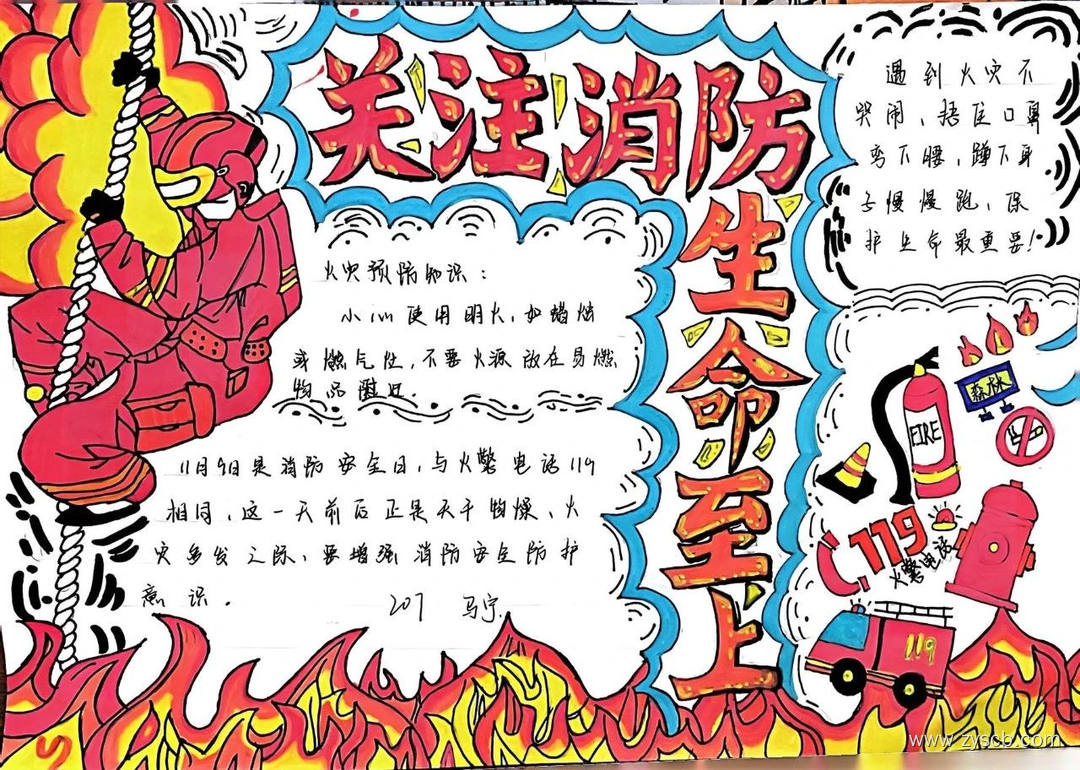 关注消防
生命至上
遇到火灾不
哭闹、捂住口鼻
弯下腰，蹲下身
子慢慢跑、保
护生命最重要!
火灾预防知识：
小心使用明火、如蜡烛
或燃气灶，不要火源放在易燃
物品附近.
11月9日是消防安全日，与火警电话119
相同，这一天前后正是天干物燥、火
灾多发之际、要增强消防安全防护
意识.
207 马宁
FIRE
森林
119
火警电话
119
www.zyscb.com